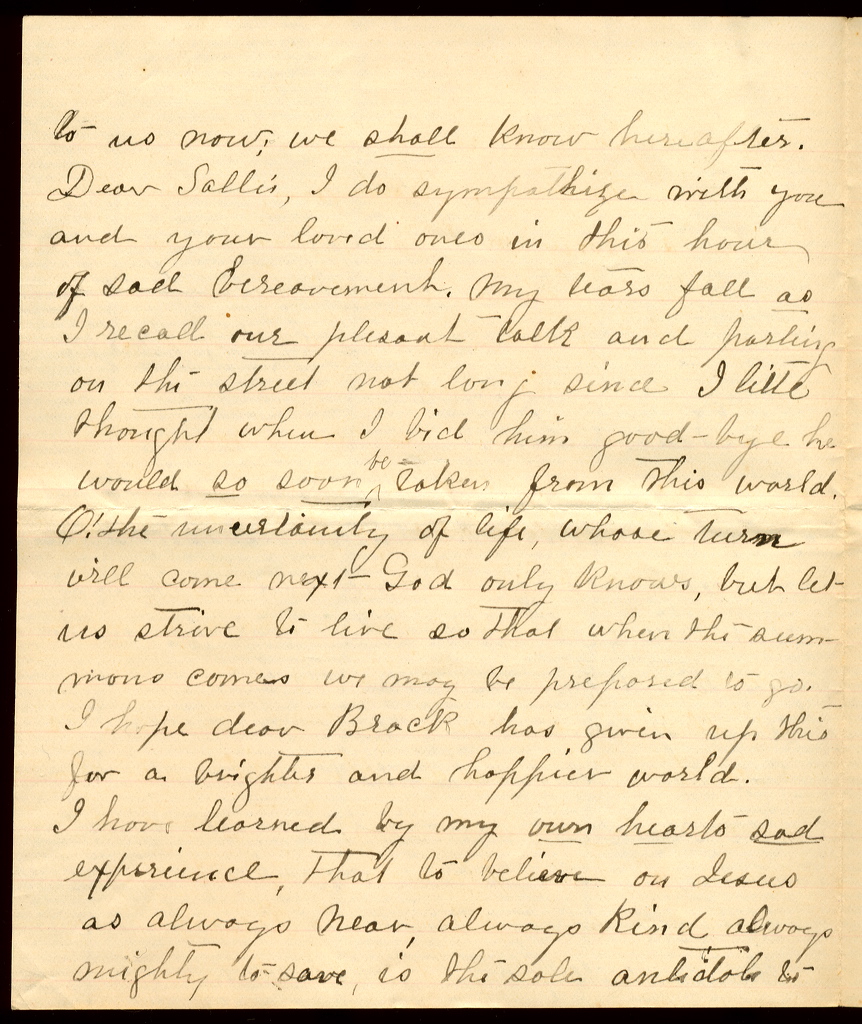 to us now; we shall know hereafter.
Dear Sallie, I do sympathize with you
and your loved ones in this hour
of sad bereavement. My tears fall as
I recall our plesant talk and parting
on the street not long since I little
thought when I bid him good-bye he
would so soon be taken from this world.
O! the uncertainty of life, whose turn
will come next God only knows, but let
us strive to live so that when the sum-
mons comes we may be prepared to go.
I hope dear Brack has given up this
for a brighter and happier world.
I have learned by my own hearts sad
experience, that to believe on Jesus
as always near, always kind, always
mighty to save, is the sole antidote to